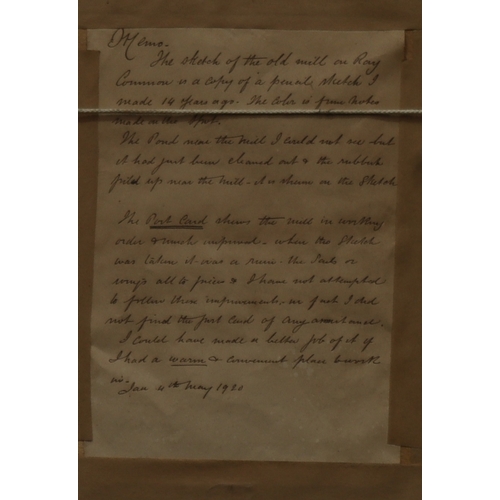 Memo.
The sketch of the old mill on Roy
Common is a copy of a pencil sketch I
made 14 years ago. The color is from notes
made on the spot.
The Pond near the Mill I could not see but
it had just been cleaned out & the rubbish
piled up near the Mill - it is shown on the Sketch
The Post Card shows the mill in working
order & much improved - when the Sketch
was taken it was a ruin - the Sails or
wings all to pieces & I have not attempted
to follow these improvements, in fact I did
not find the post card of any assistance.
I could have made a better job of it if
I had a warm & convenient place to work
in.
Jan 4th May 1920